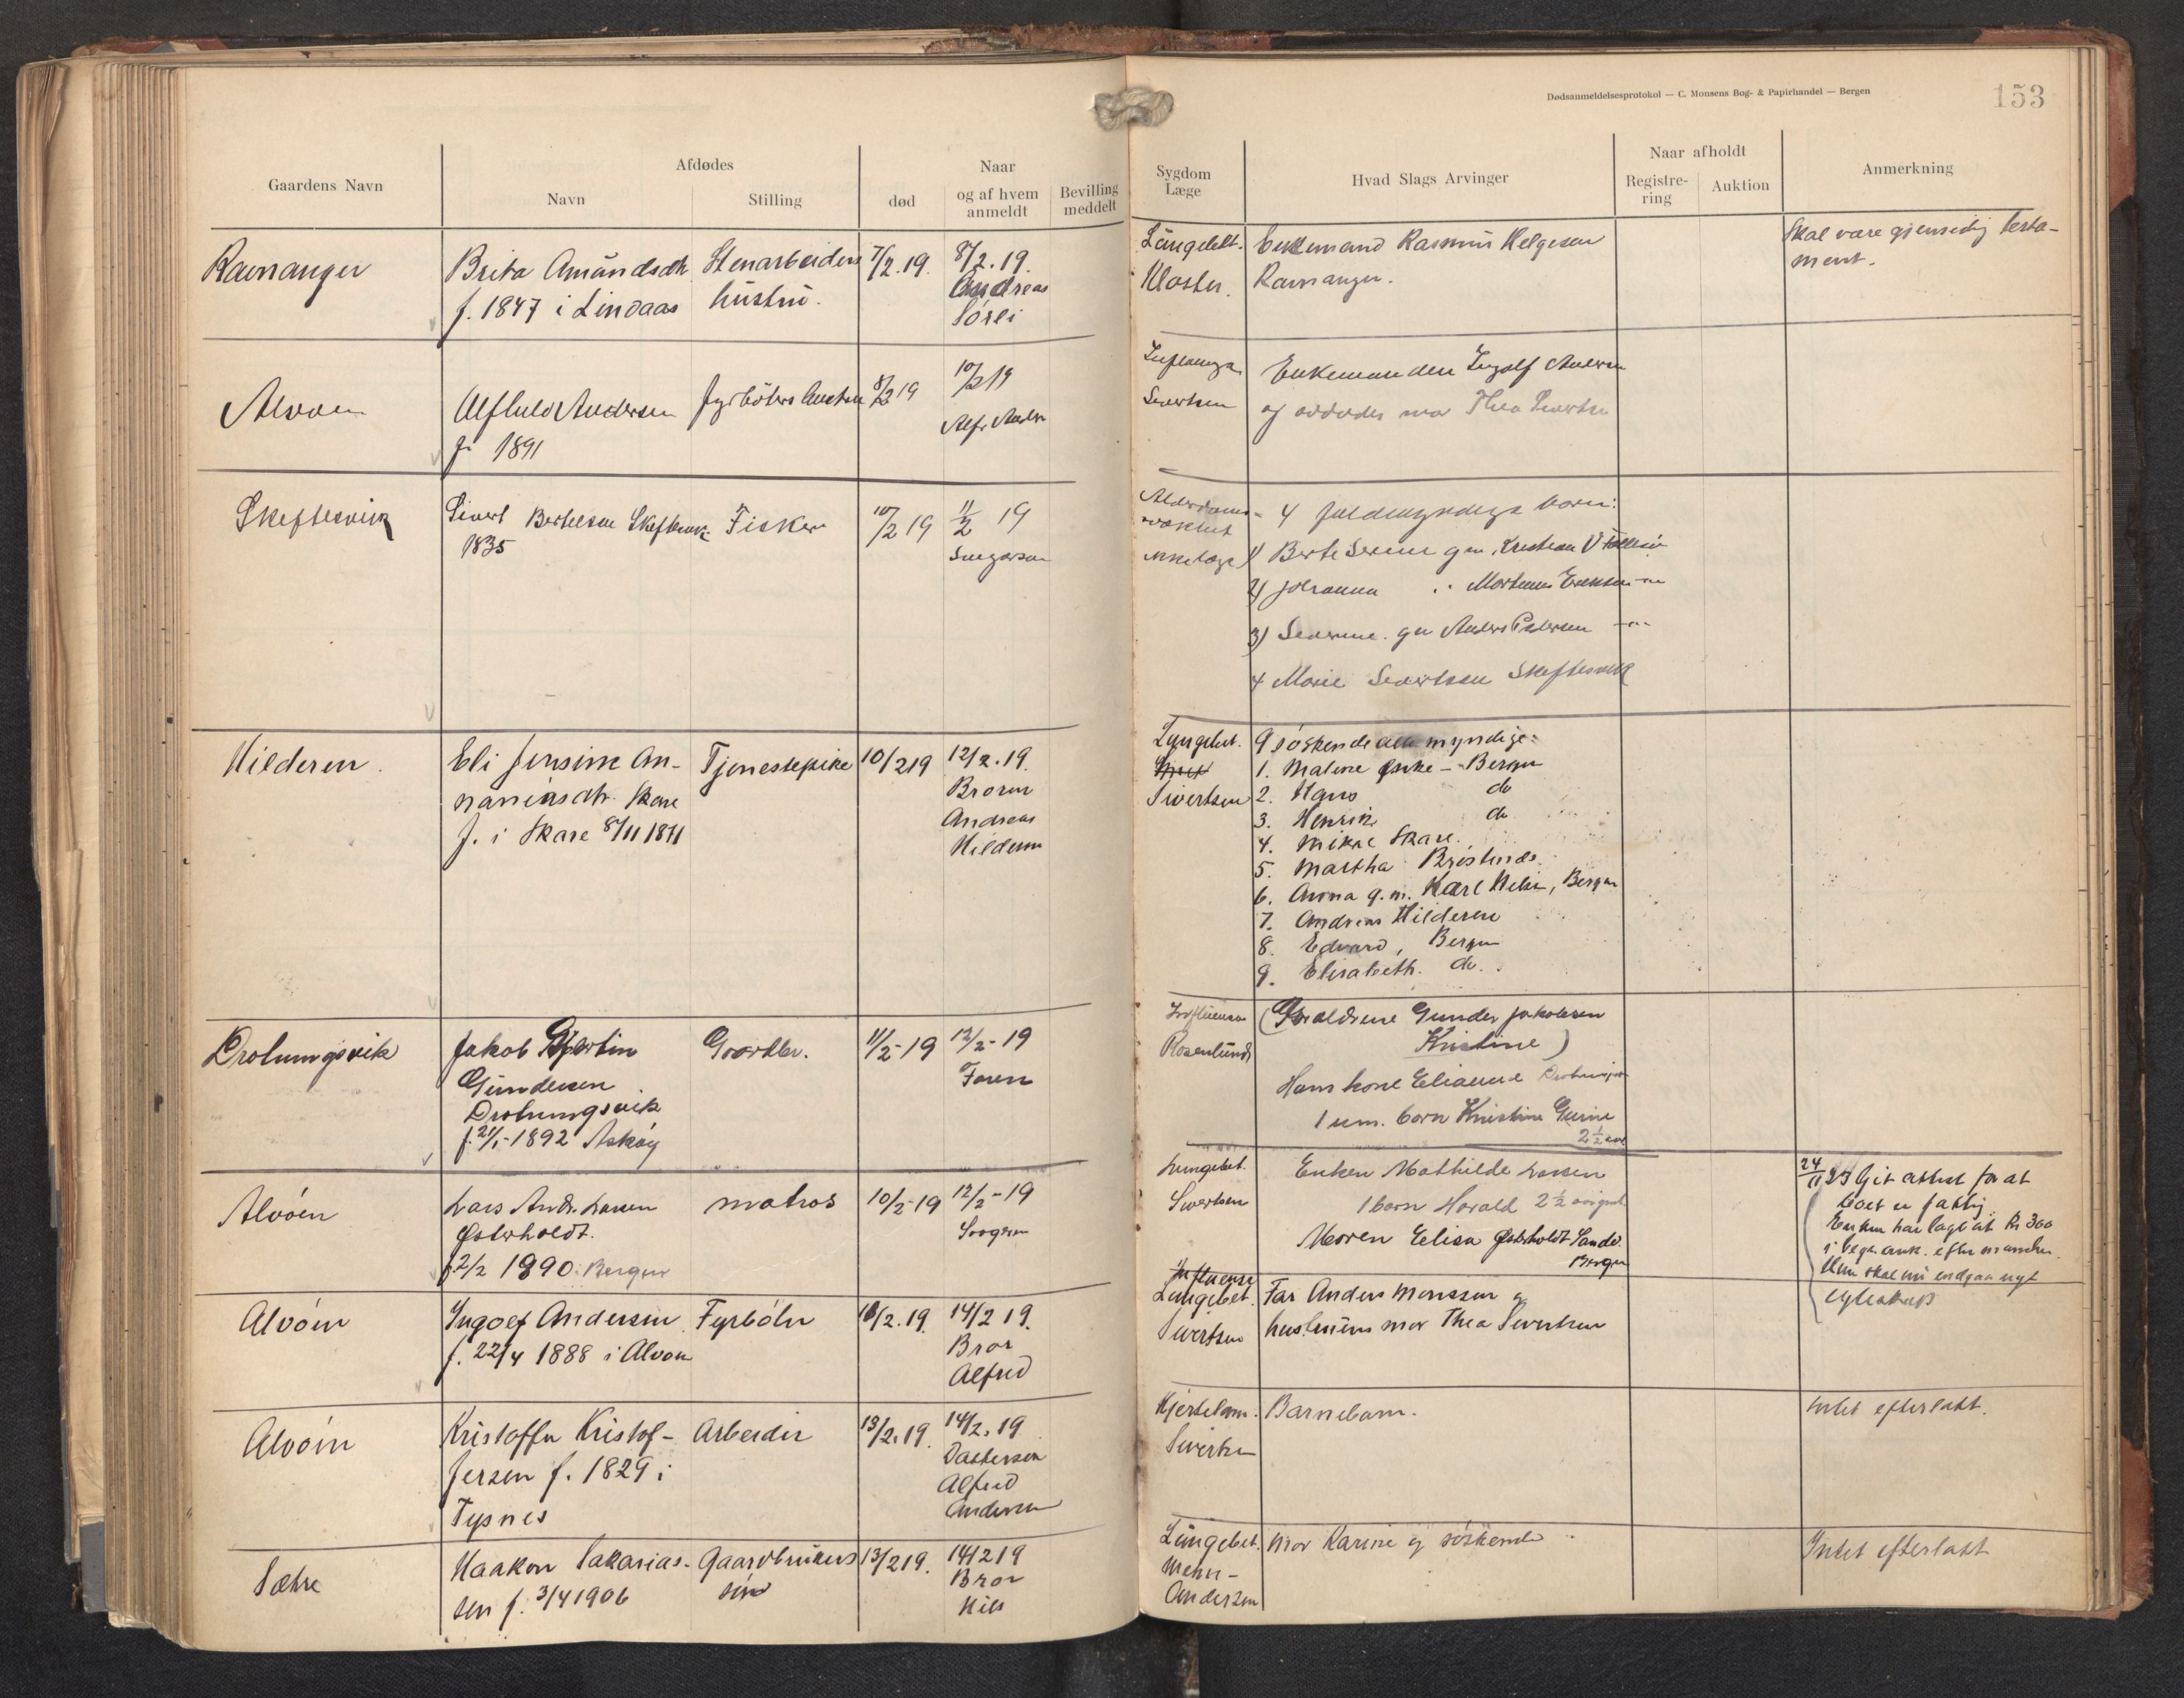 Dødsanmeldelsesprotokol — C. Monsens Bog- & Papirhandel — Bergen
153
Gaardens Navn
Afdødes
Navn
Stilling
død
Naar
og af hvem
anmeldt
Bevilling
meddelt
Sygdom
Læge
Hvad Slags Arvinger
Naar afholdt
Registre-
ring
Auktion
Anmerkning
Ravnanger
Brita Amundsdtr.
f. 1847 i Lindaas
Stenarbeiders
hustru.
7/2.19.
8/2.19.
Andreas
Sörli
Lungebet.
Kloster.
Enkemand Rasmus Helgesen
Ravnanger.
Skal være gjensidig testa-
ment.
Alvoen
Alfhild Andersen
f. 1891
fyrböters hustru
8/2 19
10/2 19
Alfr. Anders
Influenza
Sivertsen
Enkemanden Ingolf Andersen
og avdødes mor Thea Sivertsen
Skeftesvik
Sivert Bertelsen Skeftesvik
1835
Fisker
10/2 19
11/2 19
Alderdoms-
svakhet
ikke læge
4 fuldmyndige børn:
1) Berte Serine g.m. Kristian
2) Johanna " Mortinus Eriksen
3) Severine gm Anders Pedersen
4 Marie Sivertsen Skeftesvik
Hilderen.
Eli Jensine An-
naniasdtr. Skare
f. i Skare 8/11 1871
Tjenestepike
10/2 19
12/2.19.
Broren
Andreas
Hilderen
Lungebet.
Sivertsen
9 söskende alle myndige:
1. Malene Enke - Bergen
2. Hans do
3. Henrik do
4. Mikal Skare.
5. Martha
6. Anna g.m. Karl , Bergen
7. Andreas Hilderen
8. Edvard, Bergen
9. Elisabeth. do.
Drotningsvik
Jakob Martin
Gundersen
Drotningsvik
f. 21/1-1892 Askøy
Gaardbr.
11/2-19
12/2-19
Faren
Influensa
Rosenlund
(Foraldrene Gunder Jakobsen
Kristine)
Hans kone Elianne
1 um. barn Kristine Gurine
2 1/2 aar
Alvöen
Lars Andr. Larsen
Østerholdt.
f. 2/2 1890. Bergen
matros
10/2-19
12/2-19
Lungebet.
Sivertsen
Enken Mathilde Larsen
1 barn Harald 2 1/2
Moren Elisa Østerholdt Sandv.
Bergen
24/11 23 Git attest for at
boet er fattig.
Enken har lagt ut Kr 300
i begr. omk. efter manden.
Hun skal nu indgaa nyt
egteskap
Alvöen
Ingolf Andersen
f. 22/4 1888 i Alvoen
Fyrböter
13/2.19.
14/2 19.
Bror
Alfred
Influensa
Lungebet.
Sivertsen
Far Anders Monssen og
hustruens mor Thea Sivertsen
Alvöen
Kristoffer Kristof-
fersen f. 1829 i
Tysnes
Arbeider
13/2.19.
14/2.19
Dattersøn
Alfred
Andersen
Hjertelam.
Sivertsen
Barnebarn.
Intet efterlatt.
Sætre
Haakon Sakarias-
sen f. 3/4 1906
Gaardbrukers
søn
13/2 19.
14/2 19
Bror
Nils
Lungebet.
Mehn-
Andersen
Mor Karine og söskende
Intet efterlatt